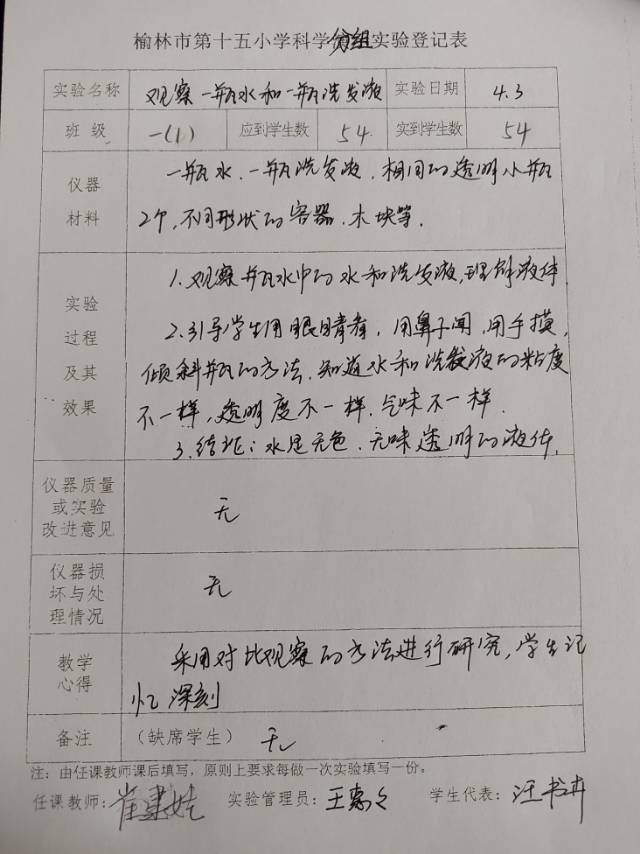 榆林市第十五小学科学分组实验登记表
实验名称 观察一瓶水和一瓶洗发液 实验日期 4.3
班级 一(1) 应到学生数 54 实到学生数 54
仪器材料 一瓶水、一瓶洗发液、相同的透明小瓶
2个,不同形状的容器、木块等.
实验过程及其效果 1.观察瓶水中的水和洗发液,理解液体
2.引导学生用眼睛看,用鼻子闻,用手摸,
倾斜瓶的方法.知道水和洗发液的粘度
不一样,透明度不一样.气味不一样.
3.结论:水是无色、无味透明的液体.
仪器质量或实验改进意见 无
仪器损坏与处理情况 无
教学心得 采用对比观察的方法进行研究,学生记
忆深刻
备注 (缺席学生) 无
注:由任课教师课后填写,原则上要求每做一次实验填写一份。
任课教师:崔建娃 实验管理员:王 学生代表:汪书卉